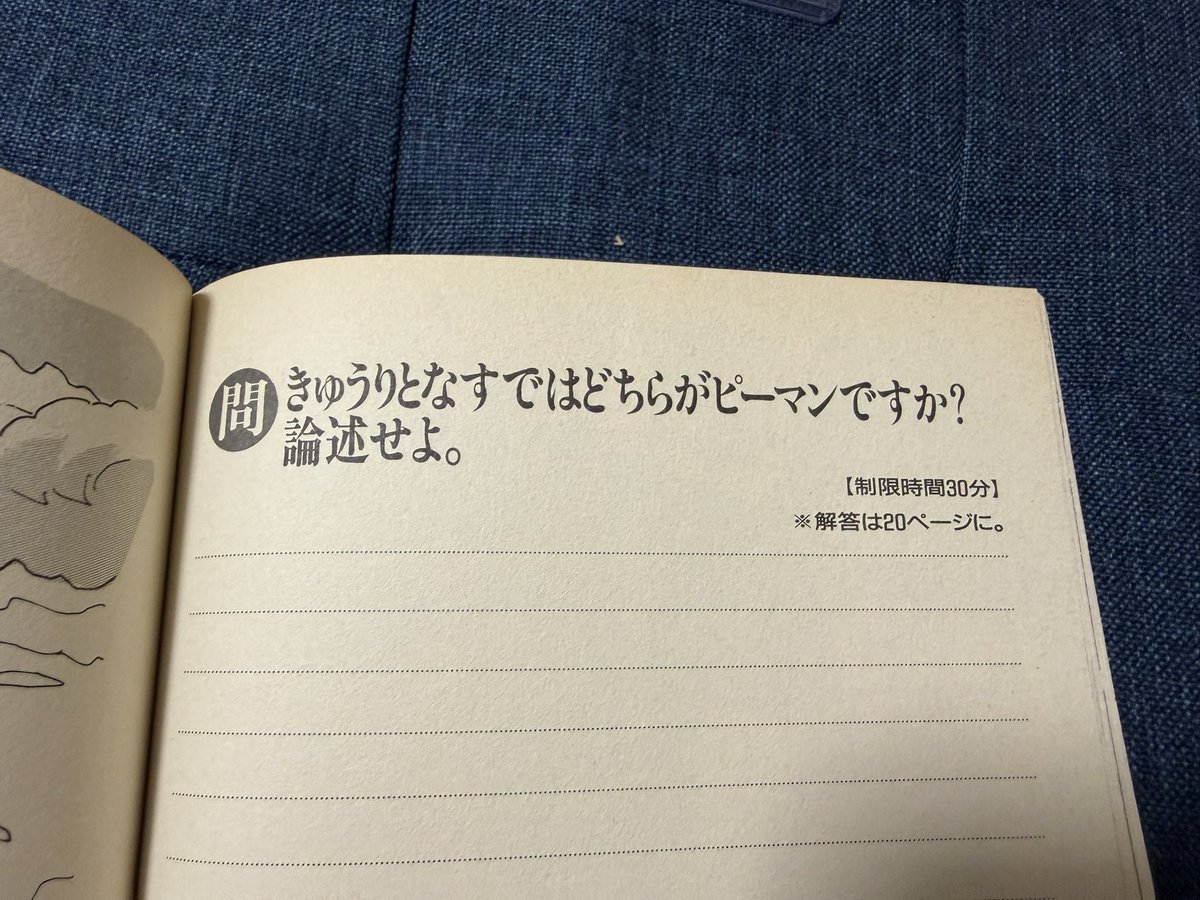 問 きゅうりとなすではどちらがピーマンですか?
論述せよ。
【制限時間30分】
※解答は20ページに。